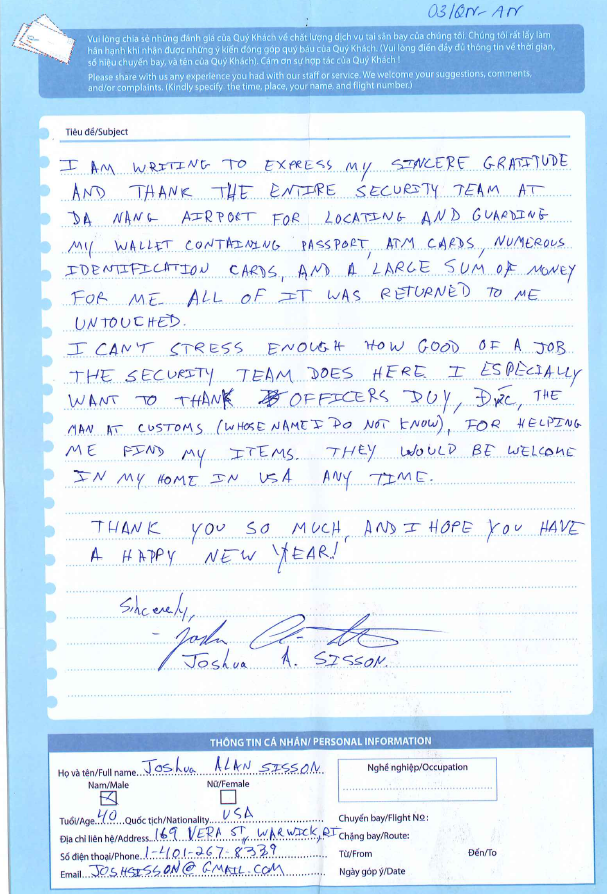 03/QN-AN
Vui lòng chia sẻ những đánh giá của Quý Khách về chất lượng dịch vụ tại sân bay của chúng tôi. Chúng tôi rất lấy làm
hân hạnh khi nhận được những ý kiến đóng góp quý báu của Quý Khách. (Vui lòng điền đầy đủ thông tin về thời gian,
số hiệu chuyến bay, và tên của Quý Khách). Cảm ơn sự hợp tác của Quý Khách !
Please share with us any experience you had with our staff or service. We welcome your suggestions, comments,
and/or complaints. (Kindly specify the time, place, your name, and flight number.)
Tiêu đề/Subject
I AM WRITING TO EXPRESS MY SINCERE GRATITUDE
AND THANK THE ENTIRE SECURITY TEAM AT
DA NANG AIRPORT FOR LOCATING AND GUARDING
MY WALLET CONTAINING PASSPORT, ATM CARDS, NUMEROUS
IDENTIFICATION CARDS, AND A LARGE SUM OF MONEY
FOR ME. ALL OF IT WAS RETURNED TO ME
UNTOUCHED.
I CAN'T STRESS ENOUGH HOW GOOD OF A JOB
THE SECURITY TEAM DOES HERE. I ESPECIALLY
WANT TO THANK OFFICERS DUY, ĐỨC, THE
MAN AT CUSTOMS (WHOSE NAME I DO NOT KNOW), FOR HELPING
ME FIND MY ITEMS. THEY WOULD BE WELCOME
IN MY HOME IN USA ANY TIME.
THANK YOU SO MUCH, AND I HOPE YOU HAVE
A HAPPY NEW YEAR!
Sincerely,
JOSHUA A. SISSON
THÔNG TIN CÁ NHÂN/ PERSONAL INFORMATION
Họ và tên/Full name JOSHUA ALAN SISSON
Nam/Male Nữ/Female
Tuổi/Age 40 Quốc tịch/Nationality USA
Địa chỉ liên hệ/Address 169 VERA ST, WARWICK, RI
Số điện thoại/Phone 1-401-267-8339
Email JOSHSISSON@GMAIL.COM
Nghề nghiệp/Occupation
Chuyến bay/Flight No:
Chặng bay/Route:
Từ/From Đến/To
Ngày góp ý/Date